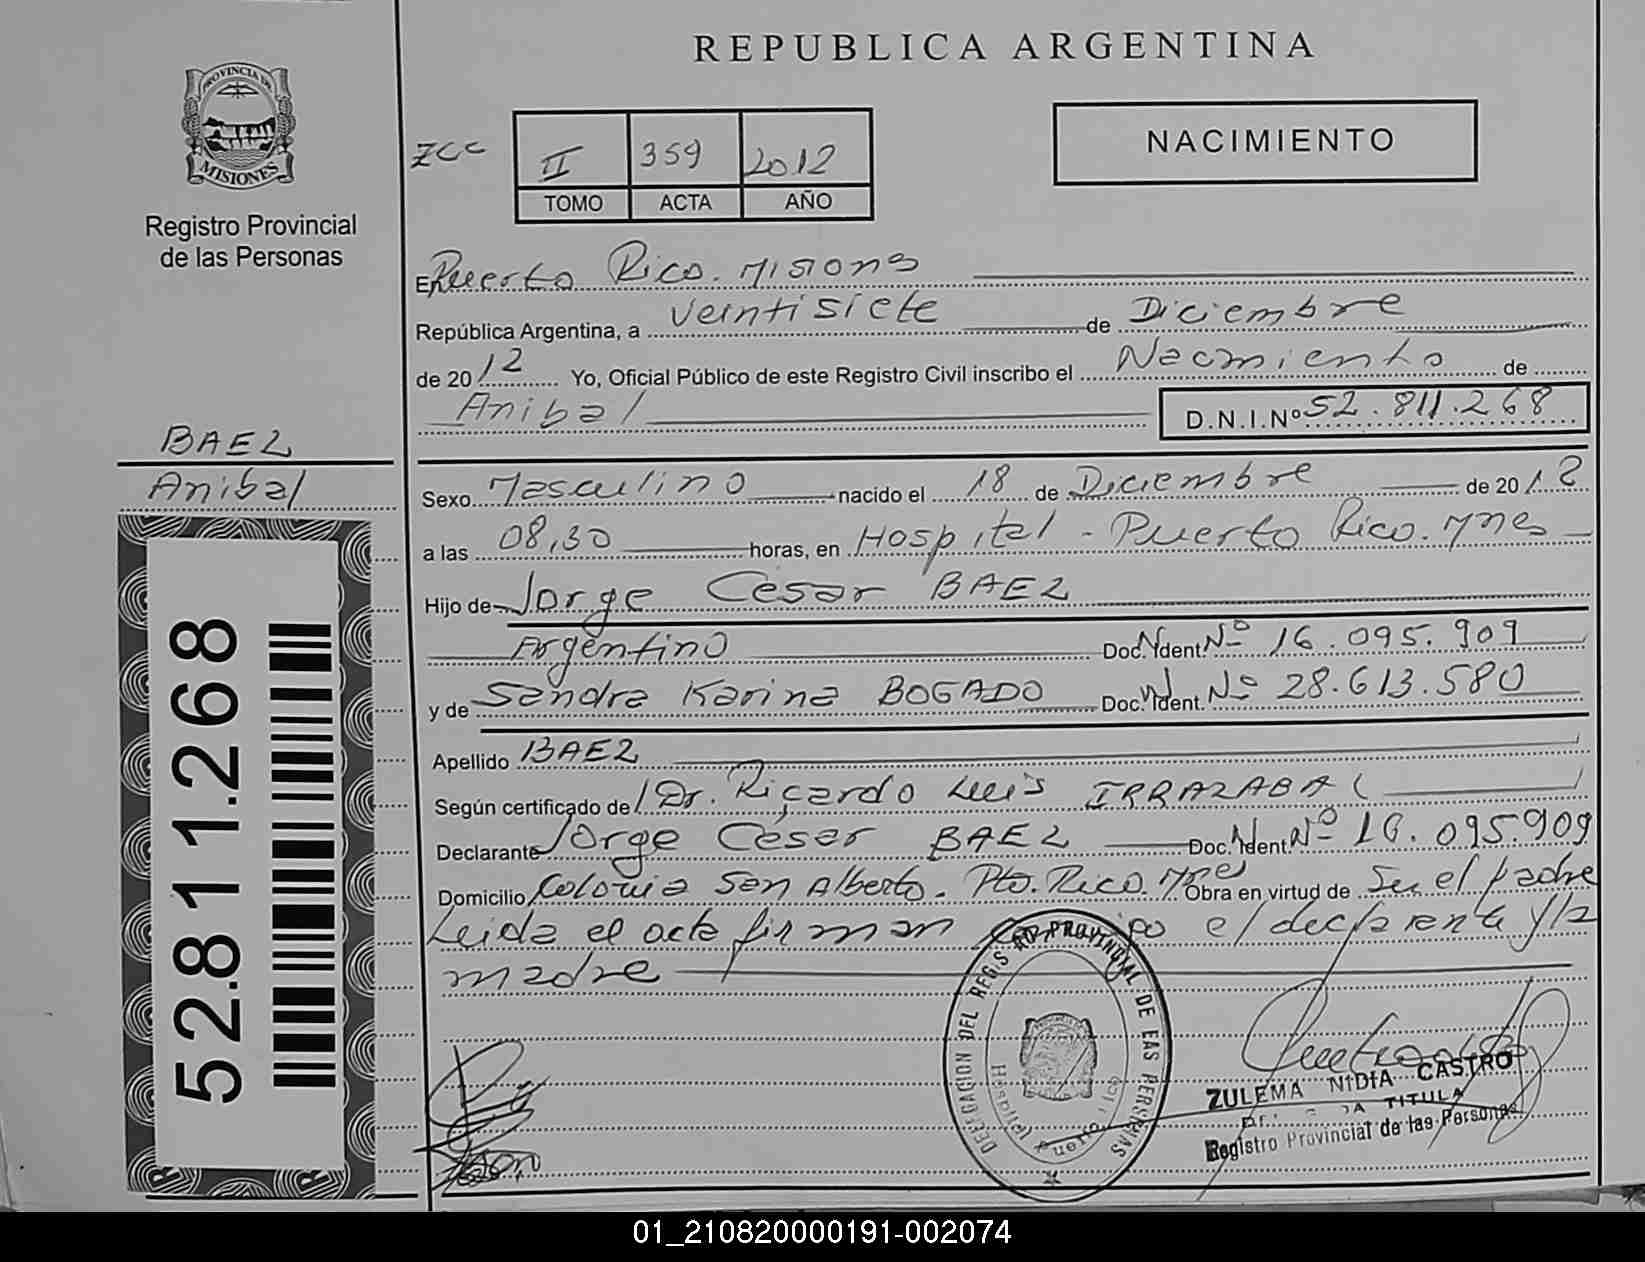 REPUBLICA ARGENTINA
PROVINCIA DE
MISIONES
Registro Provincial
de las Personas
zcc II 359 2012
TOMO ACTA AÑO
NACIMIENTO
En Puerto Rico. Misiones
República Argentina, a veintisiete de Diciembre
de 2012 Yo, Oficial Público de este Registro Civil inscribo el Nacimiento de
Anibal D.N.I.Nº 52.811.268
BAEZ
Anibal
Sexo Masculino nacido el 18 de Diciembre de 2012
a las 08,30 horas, en Hospital - Puerto Rico. Mnes
Hijo de Jorge Cesar BAEZ
Argentino Doc. N. Ident. Nº 16.095.909
y de Sandra Karina BOGADO Doc. N. Ident. Nº 28.613.580
Apellido BAEZ
Según certificado de Dr. Ricardo Luis IRRAZABAL
Declarante Jorge César BAEZ Doc. N. Ident. Nº 16.095.909
Domicilio Colonia San Alberto. Pto. Rico. Mnes Obra en virtud de Ser el padre
Leida el acta firman el declarante y la
madre
52.811.268
DELEGACION DEL REGISTRO PROVINCIAL DE LAS PERSONAS
Hospital Puerto Rico
ZULEMA NIDIA CASTRO
TITULA
Registro Provincial de las Personas
01_210820000191-002074